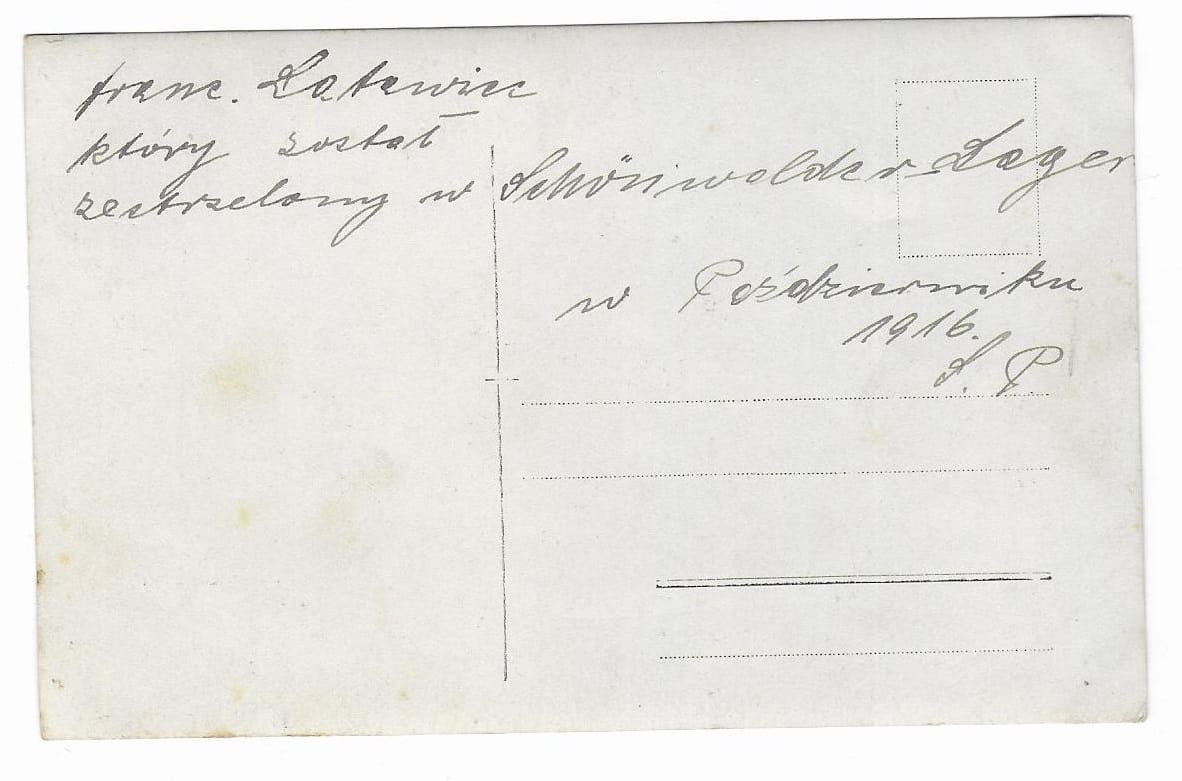 franc. Latawiec
który został
zestrzelony w Schönwalder-Lager
w Październiku
1916.
S. P.